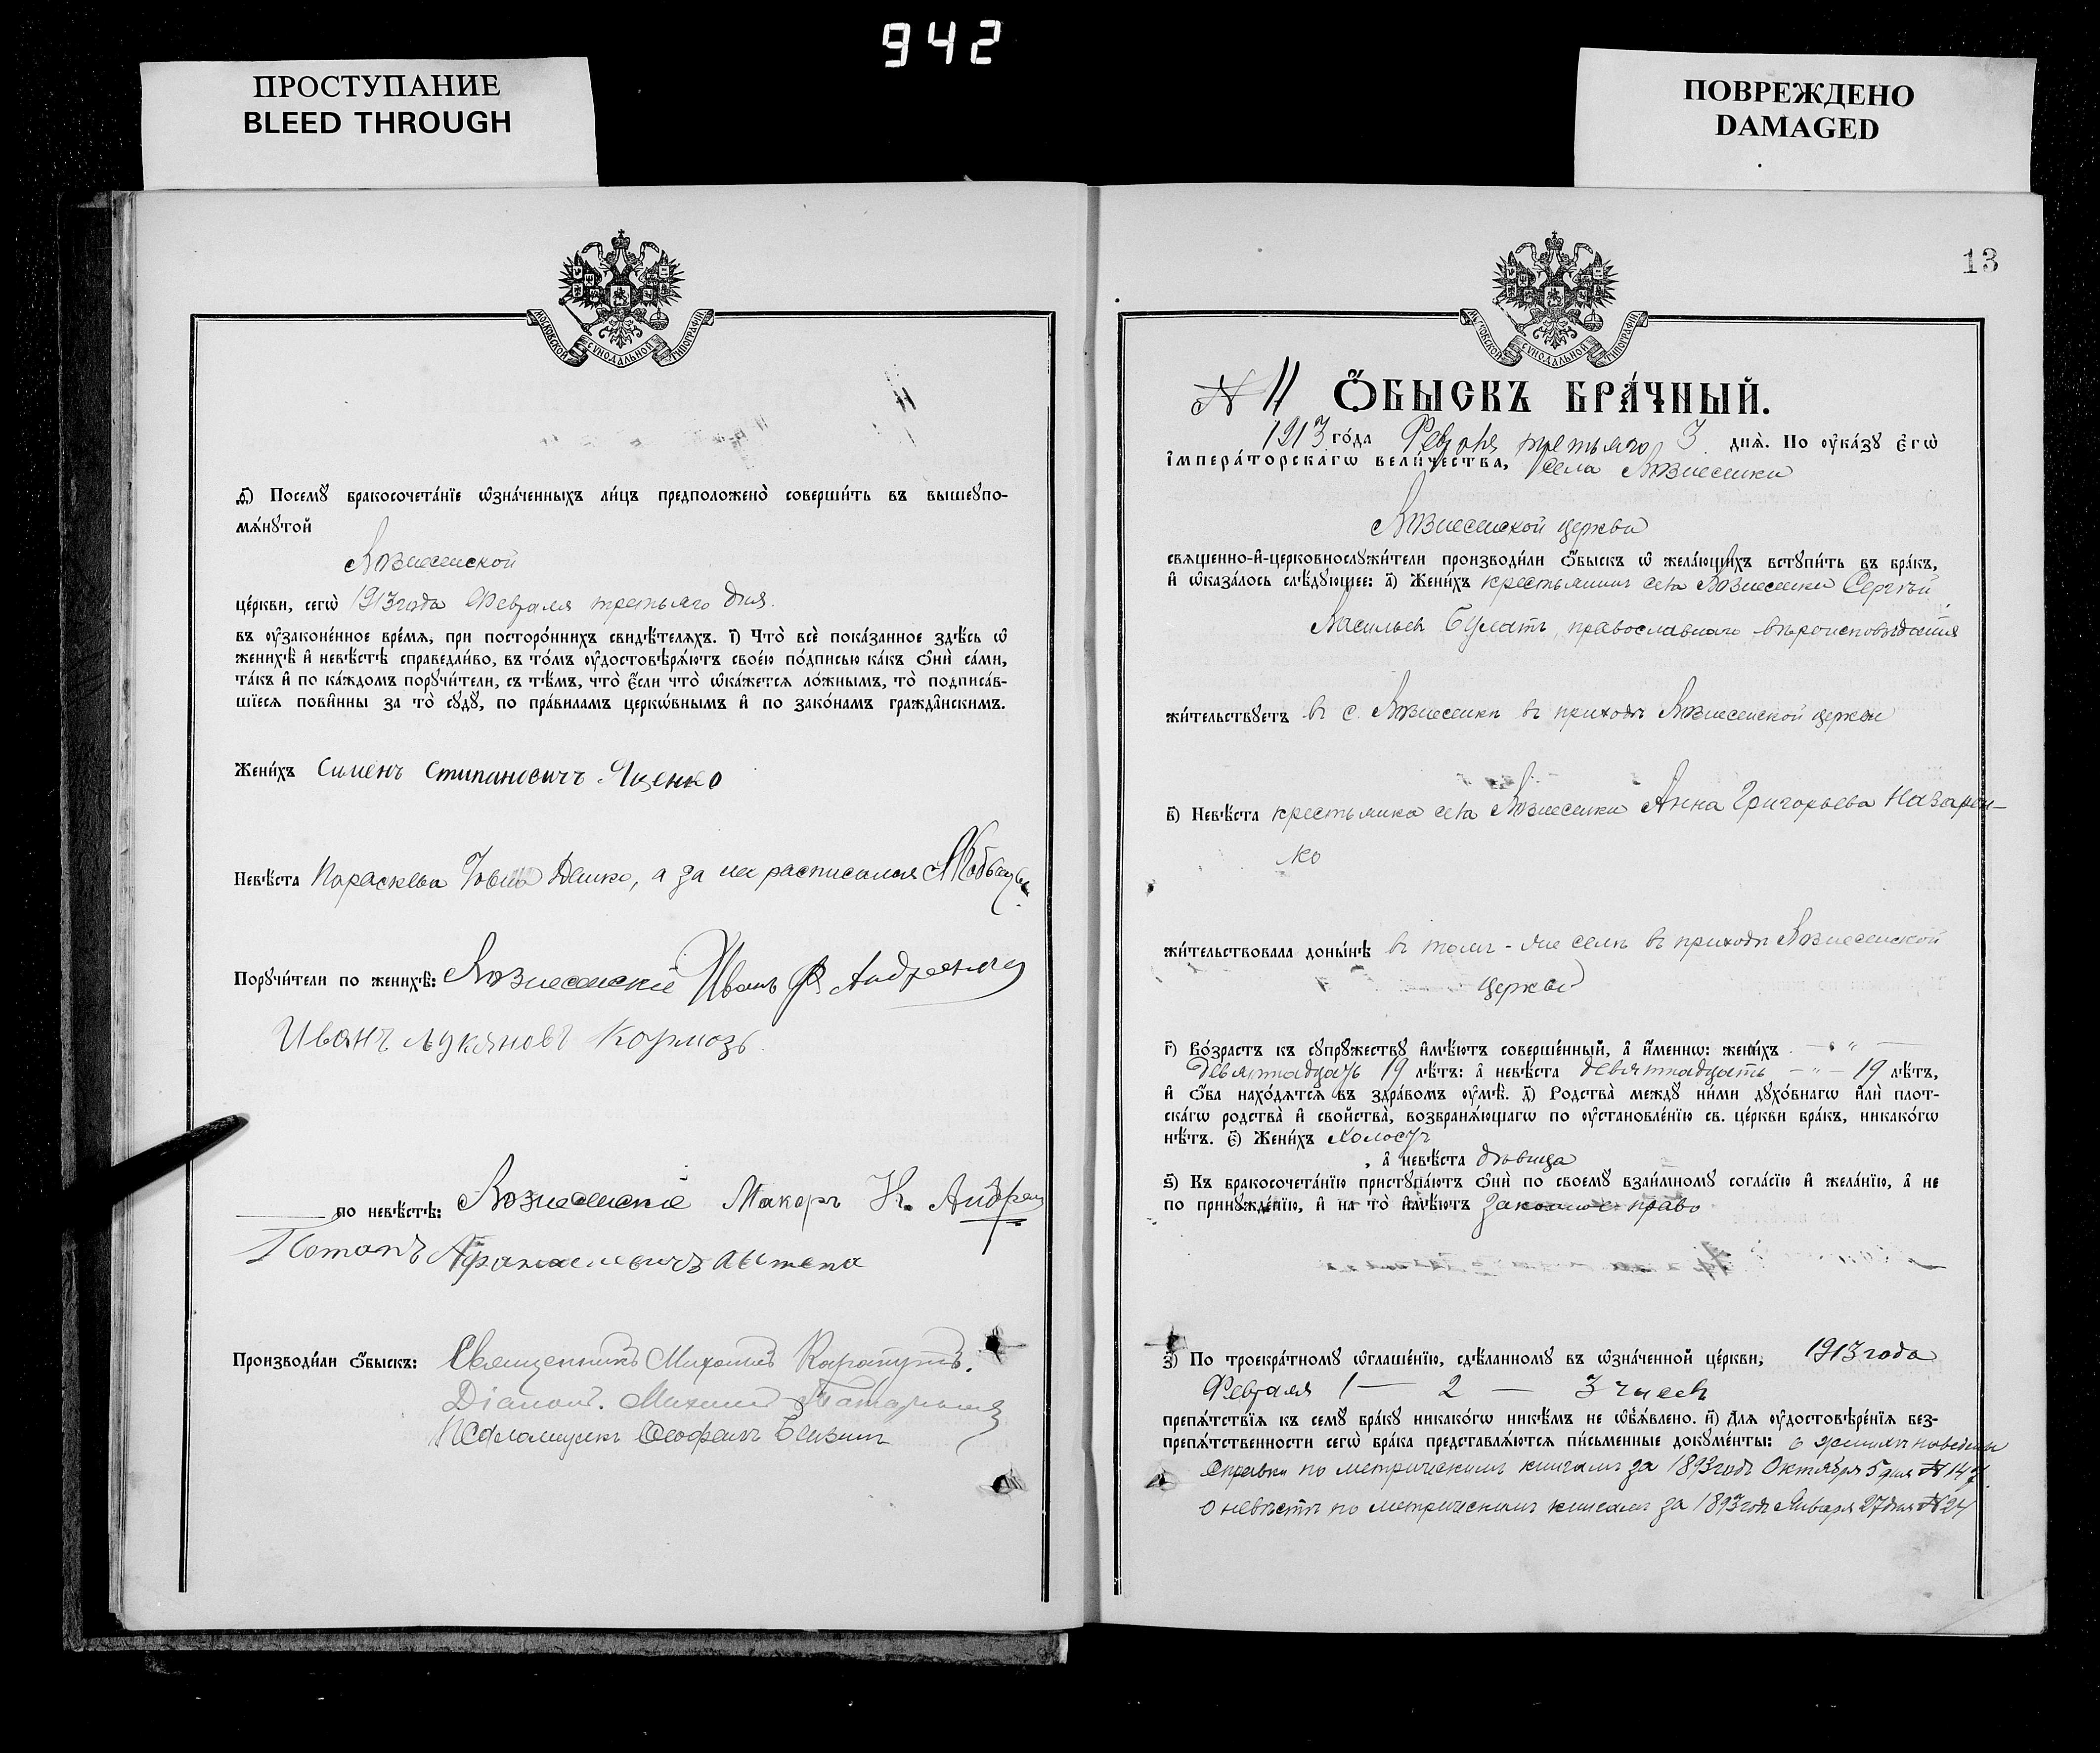 942
ПРОСТУПАНИЕ
BLEED THROUGH
ПОВРЕЖДЕНО
DAMAGED
МОСКОВСКОЙ СѴНОДАЛЬНОЙ ТИПОГРАФІИ
ѳ҃) Посемꙋ̀ бракосочета́нїе ѡ҆зна́ченныхъ ли́цъ предположено̀ соверши́ть въ вышеꙋпо-
мѧ́нꙋтой
Вознесенской
це́ркви, сегѡ̀ 1913 года Февраля третьяго дня.
въ ᲂу҆зако́ненное вре́мѧ, при посторо́ннихъ свидѣ́телѧхъ. і҃) Что̀ всѐ пока́занное здѣ́сь ѡ҆
женихѣ̀ и҆ невѣ́стѣ справедли́во, въ то́мъ ᲂу҆достовѣрѧ́ютъ свое́ю по́дписью ка́къ ѻ҆нѝ са́ми,
та́къ и҆ по ка́ждомъ порꙋчи́тели, съ тѣ́мъ, что̀ є҆́сли что̀ ѡ҆ка́жетсѧ ло́жнымъ, то̀ подписа́в-
шїесѧ пови́нны за то̀ сꙋдꙋ̀, по пра́виламъ церко́внымъ и҆ по зако́намъ гражда́нскимъ.
Жени́хъ Сименъ Стипановичъ Яценко
Невѣ́ста Параскева Демко, а за нее расписался
Порꙋчи́тели по женихѣ̀: Вознесенскіе Иванъ Ф Андреенко
Иванъ лукяновъ Кормозь
по невѣ́стѣ: Вознесенскіе Макаръ К. Андрее
Потапъ Афанасиевичъ
Производи́ли ѻ҆́быскъ: Священникъ Михаилъ
Діаконъ. Михаилъ
Псаломщикъ Ѳеофанъ
13
МОСКОВСКОЙ СѴНОДАЛЬНОЙ ТИПОГРАФІИ
№ 11 Ѻ҆БЫСКЪ БРА́ЧНЫЙ.
1913 го́да Февраля третьяго 3 днѧ̀. По ᲂу҆ка́зꙋ Є҆гѡ̀
І҆мпера́торскагѡ вели́чества, села Вознесенки
Вознесенской церкви
свѧщенно-и҆-церковнослꙋжи́тели производи́ли ѻ҆́быскъ ѡ҆ жела́ющихъ встꙋпи́ть въ бра́къ,
и҆ ѡ҆каза́лось слѣ́дꙋющее: а҃) Жени́хъ крестьянинъ села Вознесенки Сергѣй
Васильевъ Булатъ, православнаго вѣроисповѣданія
жи́тельствꙋетъ въ с. Вознесенкѣ въ приходѣ Вознесенской церкви
в҃) Невѣ́ста крестьянка села Вознесенки Анна Григорьева Назарен-
ко
жи́тельствовала доны́нѣ въ томъ-же селѣ въ приходѣ Вознесенской
церкви
г҃) Во́зрастъ къ сꙋпрꙋ́жествꙋ и҆мѣ́ютъ соверше́нный, а҆ и҆́меннѡ: жени́хъ — „ —
девятнадцать 19 лѣ́тъ: а҆ невѣ́ста девятнадцать — „ — 19 лѣ́тъ,
и҆ ѻ҆́ба нахо́дѧтсѧ въ здра́вомъ ᲂу҆мѣ̀. д҃) Родства̀ междꙋ ни́ми дꙋхо́внагѡ и҆лѝ плот-
ска́гѡ родства̀ и҆ сво́йства, возбранѧ́ющагѡ по ᲂу҆становле́нїю св. це́ркви бра́къ, никако́гѡ
нѣ́тъ. є҃) Жени́хъ холостъ
, а҆ невѣ́ста дѣвица
ѕ҃) Къ бракосочета́нїю пристꙋпа́ютъ ѻ҆нѝ по своемꙋ̀ взаи́мномꙋ согла́сїю и҆ жела́нїю, а҆ не
по принꙋжде́нїю, и҆ на то̀ и҆мѣ́ютъ законное право
з҃) По троекра́тномꙋ ѡ҆глаше́нїю, сдѣ́ланномꙋ въ ѡ҆зна́ченной це́ркви, 1913 года
Февраля 1 — 2 — 3 чиселъ
препѧ́тствїѧ къ семꙋ̀ бра́кꙋ никако́гѡ никѣ́мъ не ѡ҆б̾ѧ́влено. и҃) Длѧ̀ ᲂу҆достовѣре́нїѧ без-
препѧ́тственности сегѡ̀ бра́ка представлѧ́ютсѧ пи́сьменные докꙋме́нты: о женихѣ наведены
справки по метрическимъ книгамъ за 1893 годъ Октября 5 дня № 147.
о невѣстѣ по метрическимъ книгамъ за 1893 годъ Января 27 дня № 24